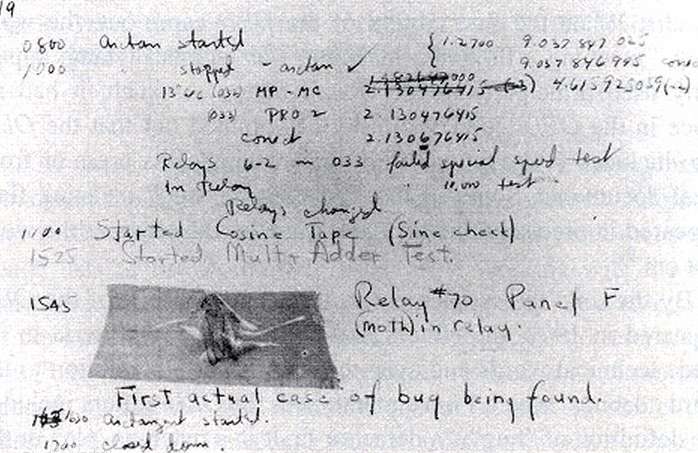 9
0800 Arctan started { 1.2700 9.037 847 025
1000 " stopped - arctan ✓ 9.037 846 995 conect
13" uc (032) MP - MC 1.982647000 2.130476415 (-3) 4.615925059 (-2)
(033) PRO 2 2.130476415
conect 2.130676415
Relays 6-2 in 033 failed special speed test
In Relay " 10.000 test .
Relays changed
1100 Started Cosine Tape (Sine check)
1525 Started Mult + Adder Test.
1545 Relay #70 Panel F
(moth) in relay.
First actual case of bug being found.
1630 Arctangent started.
1700 closed down .